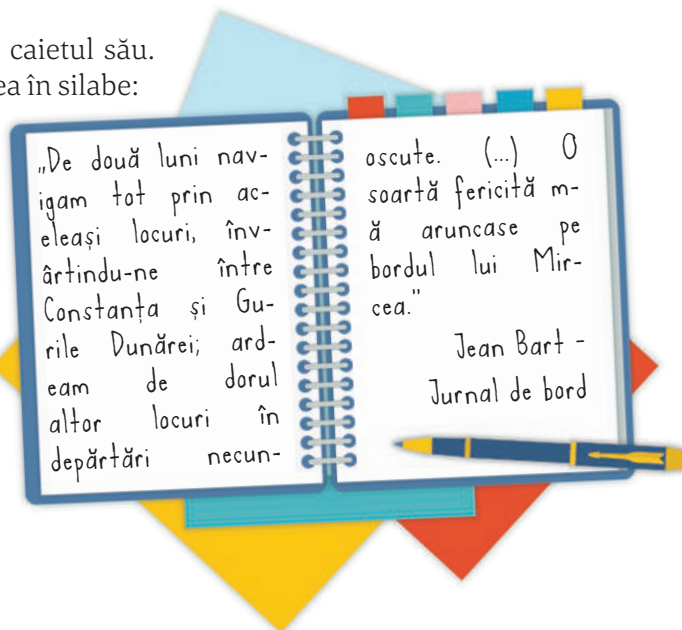 caietul său.
ea în silabe:
„De două luni nav-
igam tot prin ac-
eleași locuri, înv-
ârtindu-ne între
Constanța și Gu-
rile Dunărei; ard-
eam de dorul
altor locuri în
depărtări necun-
oscute. (...) O
soartă fericită m-
ă aruncase pe
bordul lui Mir-
cea."
Jean Bart -
Jurnal de bord